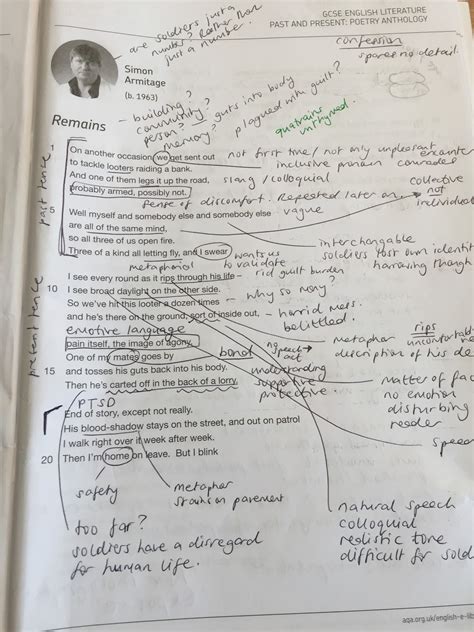 GCSE ENGLISH LITERATURE
PAST AND PRESENT: POETRY ANTHOLOGY
are soldiers just a
number? Rather than
just a number.
confession
sparering detail.
Simon
Armitage
(b. 1963)
building?
community?
person?
memory?
guts into body
plagued with guilt?
quatrains
unrhymed
Remains
1 On another occasion, we get sent out
not first time / not only unpleasant encounter
to tackle looters raiding a bank.
inclusive pronoun comrades
And one of them legs it up the road,
slang / colloquial
collective
not
individual
probably armed, possibly not.
sense of discomfort. Repeated later on.
past tense
5 Well myself and somebody else and somebody else
vague
are all of the same mind,
so all three of us open fire.
interchangable
soldiers lost own identity
Three of a kind all letting fly, and I swear
wants us
to validate
metaphorical
I see every round as it rips through his life –
rid guilt burden
10 I see broad daylight on the other side.
So we've hit this looter a dozen times
why so many?
and he's there on the ground, sort of inside out,
horrid mess.
belittled.
present tense
emotive language
pain itself, the image of agony.
metaphor
rips
description of his
One of my mates goes by
bond
no speech
act
15 and tosses his guts back into his body.
understanding
supportive
protective.
Then he's carted off in the back of a lorry.
matter of fac
no emotion
disturbing
reader
PTSD
End of story, except not really.
His blood-shadow stays on the street, and out on patrol
speech
I walk right over it week after week.
20 Then I'm home on leave. But I blink
safety
metaphor
stains on pavement
natural speech
colloquial
realistic tone
difficult for
too far?
soldiers have a disregard
for human life.
aqa.org.uk/english-e-lib